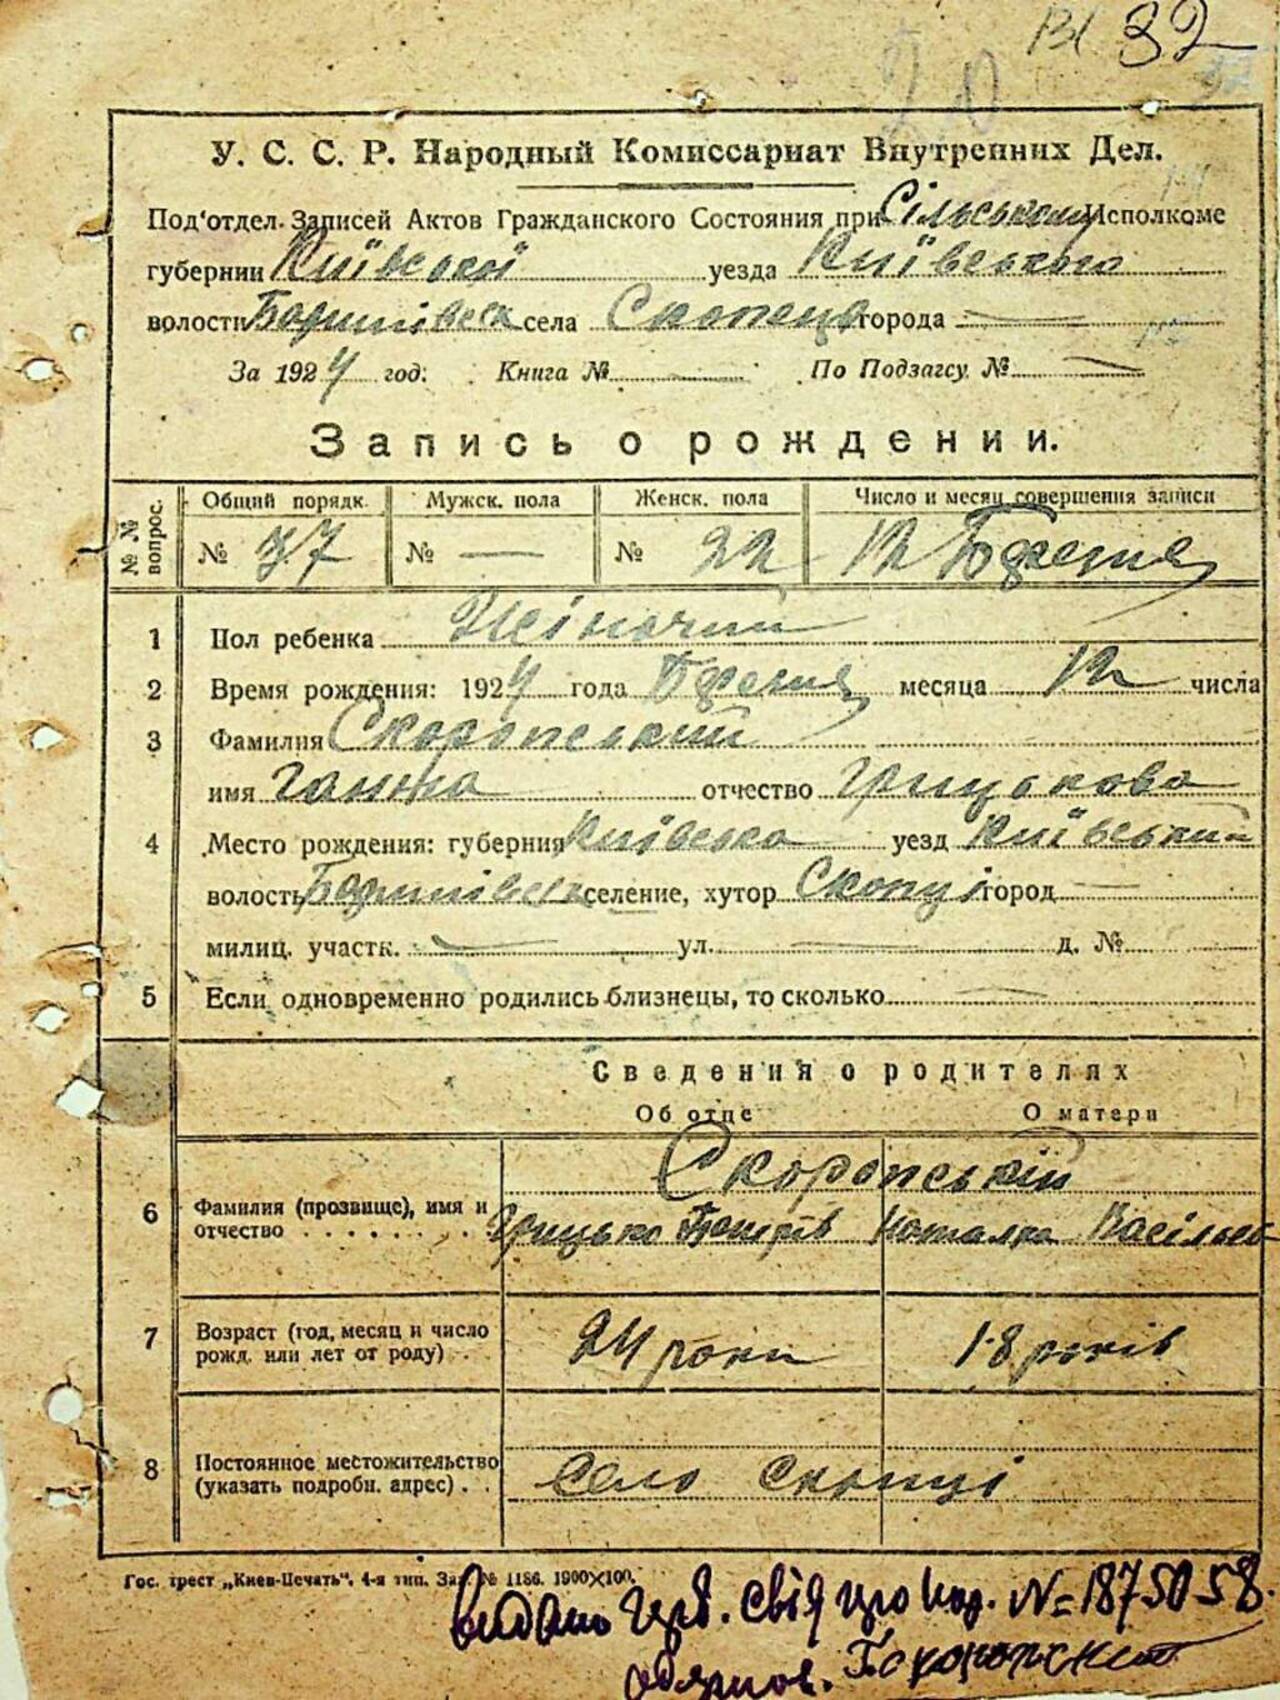 32
У. С. С. Р. Народный Комиссариат Внутренних Дел.
Под'отдел Записей Актов Гражданского Состояния при Сільському Исполкоме
губернии Київської уезда Київського
волости села Скопець города —
За 1924 год. Книга № По Подзагсу № —
Запись о рождении.
№ № вопрос. Общий порядк. Мужск. пола Женск. пола Число и месяц совершения записи
№ 37 № — № 22 12 Березня
1 Пол ребенка Жіночий
2 Время рождения: 1924 года Березня месяца 12 числа
3 Фамилия Скоропський
имя Ганна отчество Грицькова
4 Место рождения: губерния Київська уезд Київський
волость селение, хутор Скопці город —
милиц. участк. — ул. — д. №
5 Если одновременно родились близнецы, то сколько —
Сведения о родителях
Об отце О матери
Скоропський
6 Фамилия (прозвище), имя и
отчество Грицько Петрів Наталка Васільев
7 Возраст (год, месяц и число
рожд. или лет от роду) 24 роки 18 років
8 Постоянное местожительство
(указать подробн. адрес) Село Скопці
Гос. трест „Киев-Печать“, 4-я тип. Зак. № 1186. 1900×100.
видано свід №=1875058.